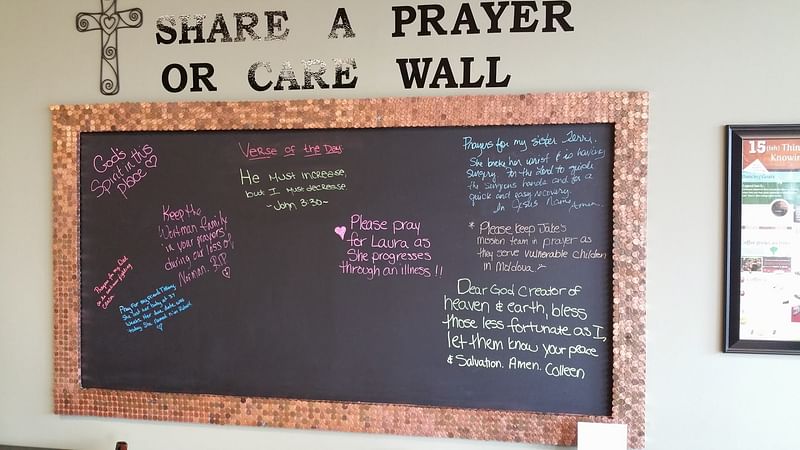 SHARE A PRAYER
OR CARE WALL
God's
Spirit in this
place
Verse of the Day
He Must increase,
but I Must decrease.
~John 3:30~
Prayers for my sister Terri.
She broke her wrist & is having
surgery. for the Lord to guide
the surgeons hands and for a
quick and easy recovery.
In Jesus Name
Amen.
Keep the
Wortman family
in your prayers
during our loss of
Norman. RIP
Please pray
for Laura as
She progresses
through an illness !!
* Please keep Jake's
mission team in prayer as
they serve vulnerable children
in Moldova
Prayers for my Dad
cancer
Pray for my friend
She lost her baby at 37
weeks. Her due date was
today. She named him
Dear God Creator of
heaven & earth, bless
those less fortunate as I,
let them know your peace
& Salvation. Amen. Colleen
15 (ish) Thin
Knowin